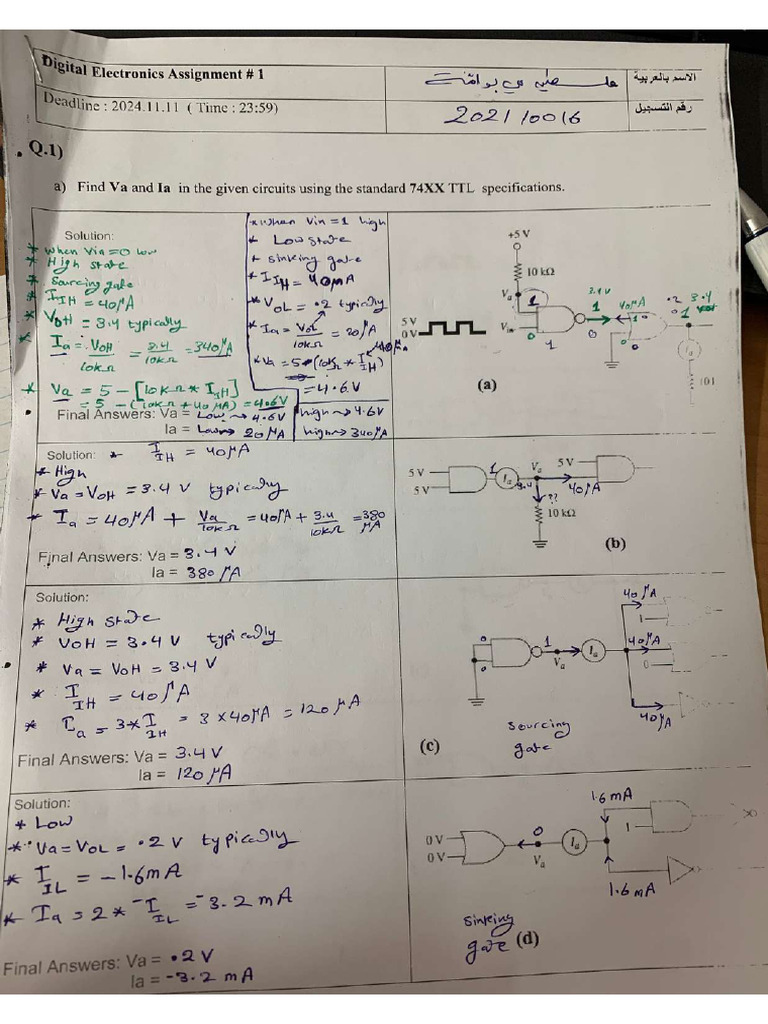 Digital Electronics Assignment # 1
الاسم بالعربية
Deadline : 2024.11.11 ( Time : 23:59)
202110016
رقم التسجيل
Q.1)
a) Find Va and Ia in the given circuits using the standard 74XX TTL specifications.
Solution:
* when Vin=0 low
* High state
* Sourcing gate
* IIH = 40μA
* VOH = 3.4 typically
* Ia = VOH / 10kΩ = 3.4 / 10kΩ = 340μA
* Va = 5 - [10kΩ * IIH]
= 5 - (10kΩ * 40μA) = 4.6V
* when Vin = 1 high
* Low state
* sinking gate
* IIH = 40μA
* VOL = .2 typically
* Ia = VOL / 10kΩ = 20μA
* Va = 5 - (10kΩ * IIH) 40μA
= 4.6V
Final Answers: Va = Low → 4.6V high → 4.6V
Ia = Low → 20μA high → 340μA
+5 V
10 kΩ
Va
1
3.4V
1
40μA
.2 3.4
1
5 V
0 V
Vin
0
1
0
0
Ia
(a)
Solution: * IIH = 40μA
* High
* Va = VOH = 3.4 V typically
* Ia = 40μA + Va / 10kΩ = 40μA + 3.4 / 10kΩ = 380 μA
Final Answers: Va = 3.4 V
Ia = 380 μA
5 V
5 V
1
Ia
3.4
Va
5 V
40μA
??
10 kΩ
(b)
Solution:
* High state
* VOH = 3.4 V typically
* Va = VOH = 3.4 V
* IIH = 40μA
* Ia = 3*IIH = 3 x 40μA = 120μA
Final Answers: Va = 3.4 V
Ia = 120 μA
40μA
1
0
0
1
Va
Ia
40μA
0
40μA
sourcing
gate
(c)
Solution:
* Low
* Va = VOL = .2 V typically
* IIL = -1.6mA
* Ia = 2 * -IIL = -3.2 mA
Final Answers: Va = .2 V
Ia = -3.2 mA
1.6 mA
0 V
0 V
0
Va
Ia
1
1.6 mA
sinking
gate
(d)